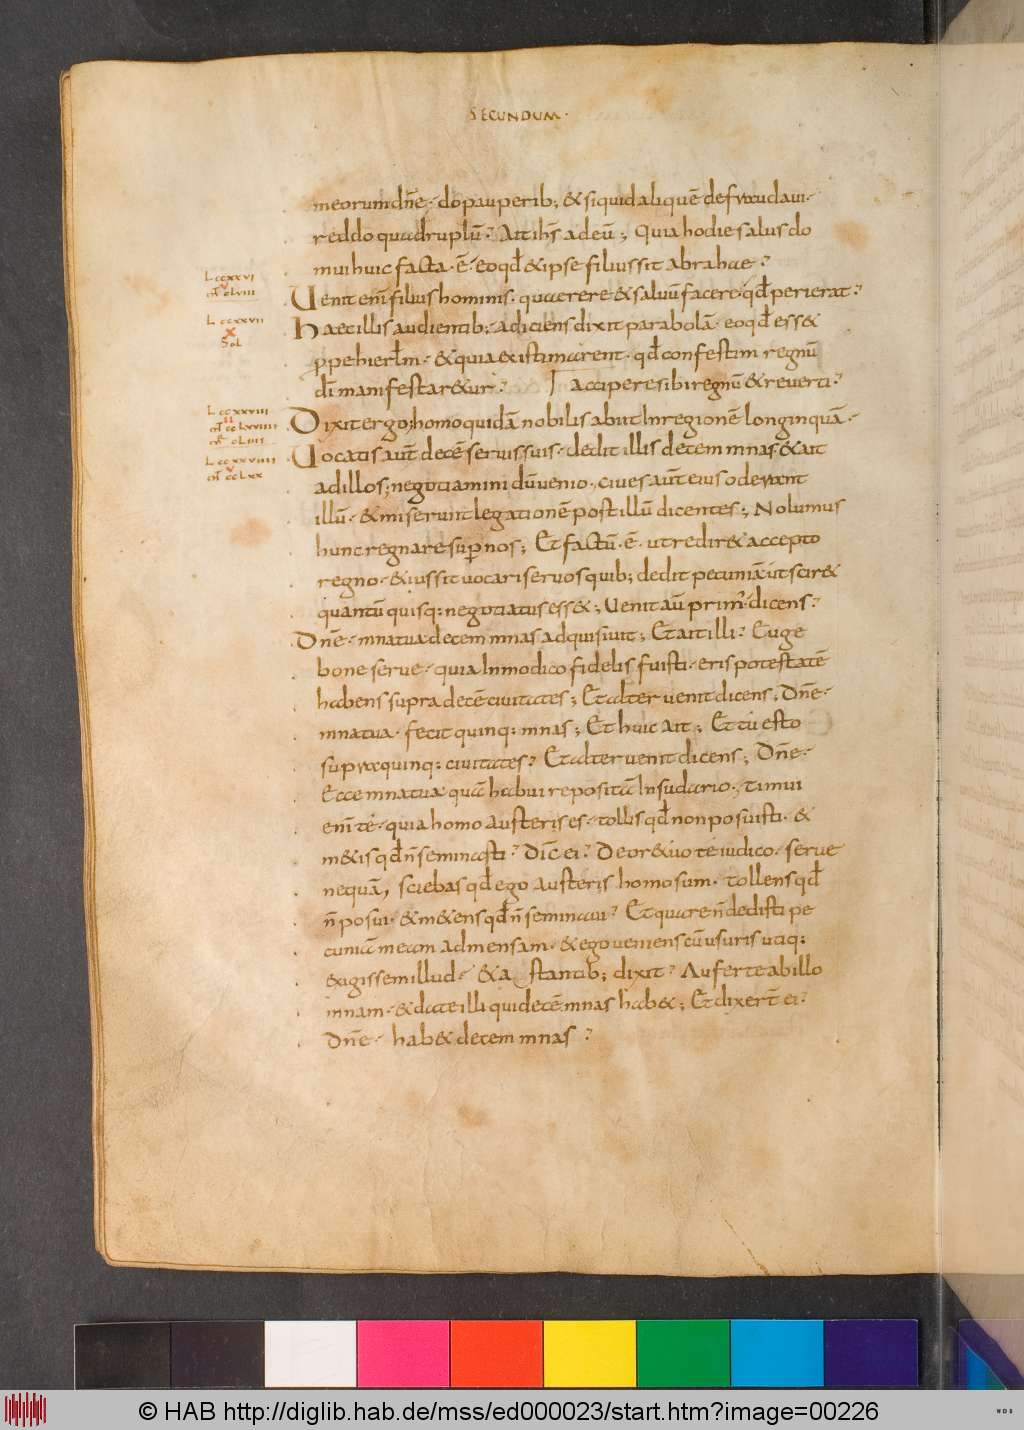 SECUNDUM·
meorum dn̄e· do pauperib; & siquid aliquē defraudavi·
reddo quadruplū? Ait ihs̄ ad eū; Quia hodie salus do
mui huic facta· ē· eo qd̄ & ipse filius sit abrahae?
L ccxxvi
Uenit enī filius hominis· quaerere & salvū facere qd̄ perierat?
L ccxxvii
X
Sol
Haec illis audientib; adiciens dixit parabolā· eo qd̄ ess&
p̱pe hierlm̄· & quia existimarent· qd̄ confestim regnū
dī manifestar&ur? Γ accipere sibi regnū & reverti?
L ccxxviii
Dixit ergo; homo quidā nobilis abiit In regionē longinquā·
L ccxxviiii
v
m̄ cclxx
Uocatis aut̄ decē servis suis· dedit illis decem mnas· & ait
ad illos; negotiamini dū venio· cives aut̄ eius oderant
illū· & miserunt legationē post illū dicentes; Nolumus
hunc regnare sup̱ nos; Et factū· ē· ut redir& accepto
regno· & iussit vocari servos quib; dedit pecuniā ut scir&
quantū quisq: negotiatus ess&; Uenit aū primꝰ dicens?
Dn̄e· mna tua decem mnas adquisivit; Et ait illi? Euge
bone serve· quia In modico fidelis fuisti· eris potestatē
habens supra decē civitates; Et alter venit dicens· Dn̄e·
mna tua· fecit quinq: mnas; Et huic ait; Et tu esto
supra quinq: civitates? Et alter venit dicens; Dn̄e·
Ecce mna tua quā habui repositā In sudario· timui
enī te· quia homo austeris es· tollis qd̄ non posuisti· &
m&is qd̄ n̄ seminasti? Dic̄ ei? De ore tuo te iudico· serve
nequā, sciebas qd̄ ego austeris homo sum· tollens qd̄
n̄ posui· & m&ens qd̄ n̄ seminavi? Et quare n̄ dedisti pe
cuniā meam ad mensam· & ego veniens cū usuris utiq:
exigissem illud· & a stantib; dixit? Auferte ab illo
mnam· & date illi qui decē mnas hab&; Et dixert̄ ei?
Dn̄e· hab& decem mnas?
© HAB http://diglib.hab.de/mss/ed000023/start.htm?image=00226